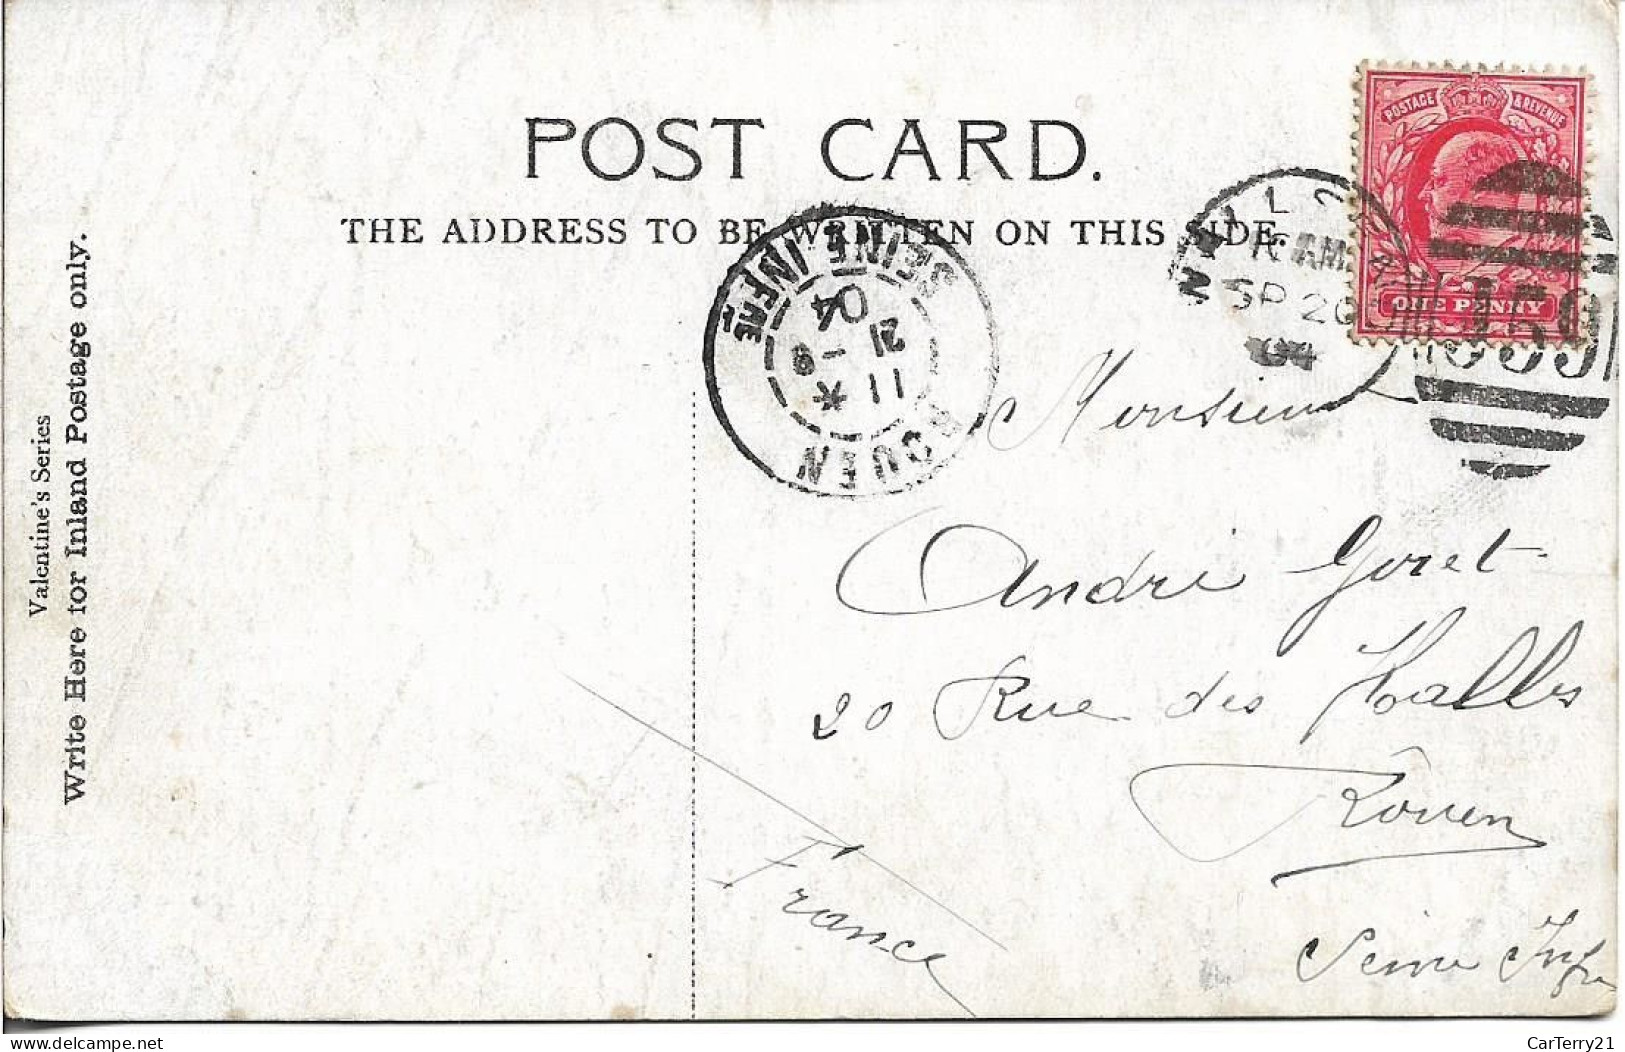 POST CARD.
THE ADDRESS TO BE WRITTEN ON THIS SIDE.
Valentine's Series
Write Here for Inland Postage only.
POSTAGE & REVENUE
ONE PENNY
AM
SP 20
04
ROUEN
SEINE INFRE
11 *
21 - 9
04
Monsieur
André Goret
20 Rue des Halles
Rouen
Seine Infre
France
CarTerry21